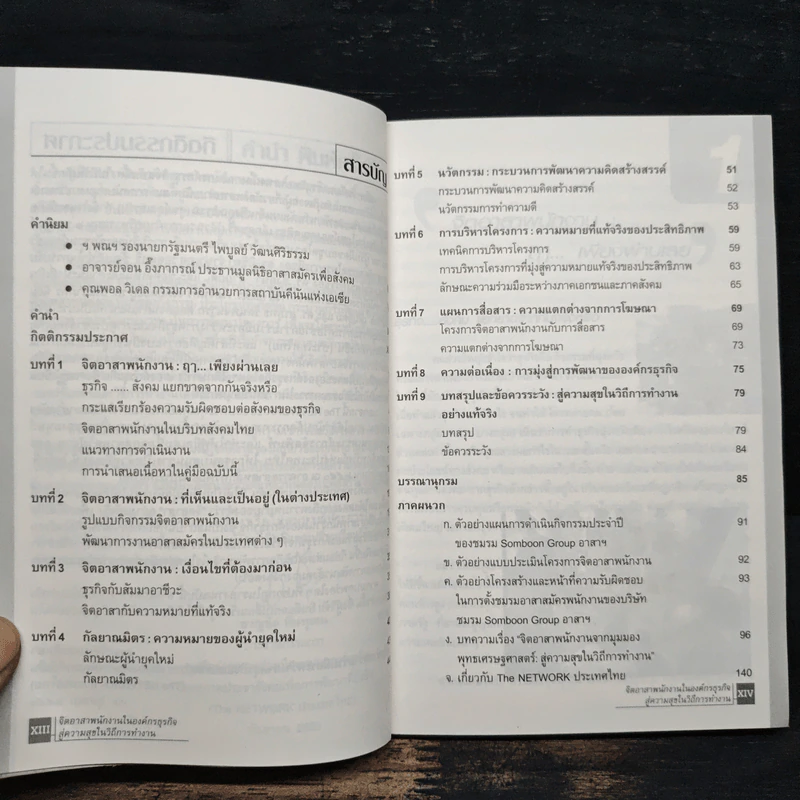 สารบัญ
คำนิยม
● ฯ พณฯ รองนายกรัฐมนตรี ไพบูลย์ วัฒนศิริธรรม
● อาจารย์จอน อึ๊งภากรณ์ ประธานมูลนิธิอาสาสมัครเพื่อสังคม
● คุณพอล วิเดล กรรมการอำนวยการสถาบันคีนันแห่งเอเซีย
คำนำ
กิตติกรรมประกาศ
บทที่ 1 จิตอาสาพนักงาน : ฤๅ... เพียงผ่านเลย
ธุรกิจ ...... สังคม แยกขาดจากกันจริงหรือ
กระแสเรียกร้องความรับผิดชอบต่อสังคมของธุรกิจ
จิตอาสาพนักงานในบริบทสังคมไทย
แนวทางการดำเนินงาน
การนำเสนอเนื้อหาในคู่มือฉบับนี้
บทที่ 2 จิตอาสาพนักงาน : ที่เห็นและเป็นอยู่ (ในต่างประเทศ)
รูปแบบกิจกรรมจิตอาสาพนักงาน
พัฒนาการงานอาสาสมัครในประเทศต่าง ๆ
บทที่ 3 จิตอาสาพนักงาน : เงื่อนไขที่ต้องมาก่อน
ธุรกิจกับสัมมาอาชีวะ
จิตอาสากับความหมายที่แท้จริง
บทที่ 4 กัลยาณมิตร : ความหมายของผู้นำยุคใหม่
ลักษณะผู้นำยุคใหม่
กัลยาณมิตร
XIII จิตอาสาพนักงานในองค์กรธุรกิจ
สู่ความสุขในวิถีการทำงาน
บทที่ 5 นวัตกรรม : กระบวนการพัฒนาความคิดสร้างสรรค์ 51
กระบวนการพัฒนาความคิดสร้างสรรค์ 52
นวัตกรรมการทำความดี 53
บทที่ 6 การบริหารโครงการ : ความหมายที่แท้จริงของประสิทธิภาพ 59
เทคนิคการบริหารโครงการ 59
การบริหารโครงการที่มุ่งสู่ความหมายแท้จริงของประสิทธิภาพ 63
ลักษณะความร่วมมือระหว่างภาคเอกชนและภาคสังคม 65
บทที่ 7 แผนการสื่อสาร : ความแตกต่างจากการโฆษณา 69
โครงการจิตอาสาพนักงานกับการสื่อสาร 69
ความแตกต่างจากการโฆษณา 73
บทที่ 8 ความต่อเนื่อง : การมุ่งสู่การพัฒนาขององค์กรธุรกิจ 75
บทที่ 9 บทสรุปและข้อควรระวัง : สู่ความสุขในวิถีการทำงาน 79
อย่างแท้จริง
บทสรุป 79
ข้อควรระวัง 84
บรรณานุกรม 85
ภาคผนวก
ก. ตัวอย่างแผนการดำเนินกิจกรรมประจำปี 91
ของชมรม Somboon Group อาสาฯ
ข. ตัวอย่างแบบประเมินโครงการจิตอาสาพนักงาน 92
ค. ตัวอย่างโครงสร้างและหน้าที่ความรับผิดชอบ 93
ในการตั้งชมรมอาสาสมัครพนักงานของบริษัท
ชมรม Somboon Group อาสาฯ
ง. บทความเรื่อง "จิตอาสาพนักงานจากมุมมอง 96
พุทธเศรษฐศาสตร์: สู่ความสุขในวิถีการทำงาน"
จ. เกี่ยวกับ The NETWORK ประเทศไทย 140
จิตอาสาพนักงานในองค์กรธุรกิจ XIV
สู่ความสุขในวิถีการทำงาน